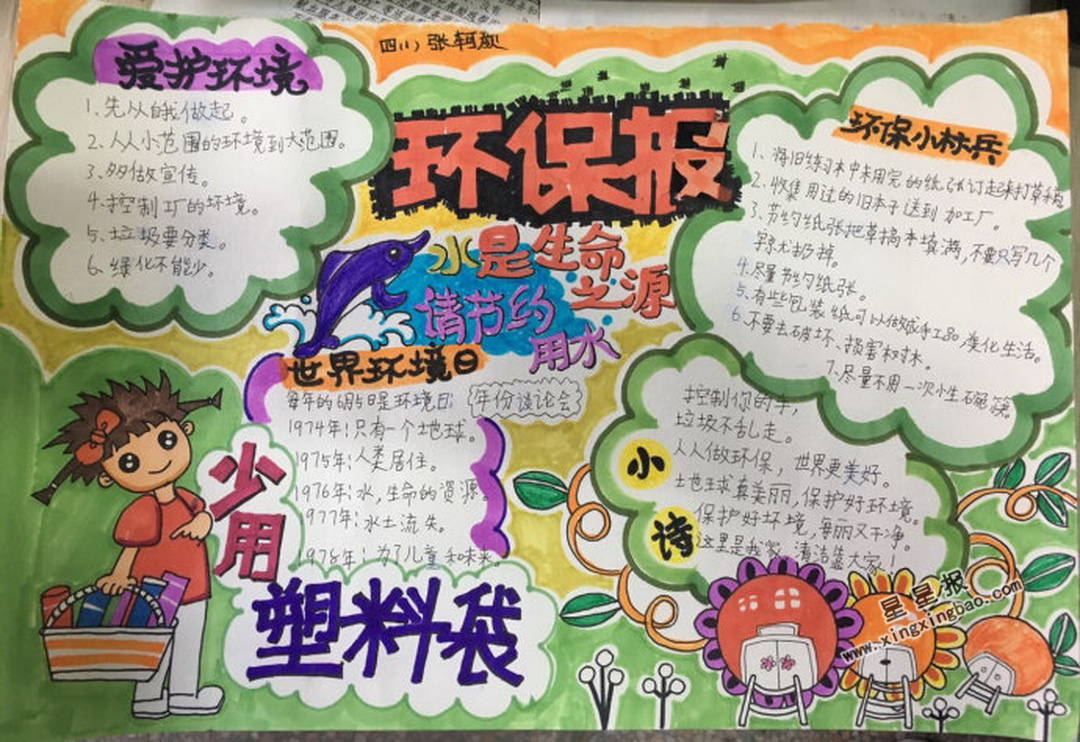 四(1) 张轲颜
环保报
爱护环境
1.先从自我做起。
2.从小范围的环境到大范围。
3.多做宣传。
4.控制工厂的环境。
5.垃圾要分类。
6.绿化不能少。
水是生命之源
请节约用水
环保小标兵
1.将旧练习本中未用完的纸张订起来打草稿
2.收集用过的旧本子送到加工厂。
3.节约纸张把草搞本填满,不要只写几个
字就扔掉。
4.尽量节约纸张。
5.有些包装纸可以做成手工品美化生活。
6.不要去破坏、损害树木。
7.尽量不用一次性碗筷。
世界环境日
每年的6月5日是环境日
年份谈论会
1974年:只有一个地球。
1975年:人类居住。
1976年:水,生命的资源。
1977年:水土流失。
1978年:为了儿童和未来。
少用
塑料袋
小诗
控制你的手,
垃圾不乱走。
人人做环保,世界更美好。
土地球真美丽,保护好环境。
保护好环境,每丽又干净。
这里是我家,清洁靠大家!
星星报
www.xingxingbao.com